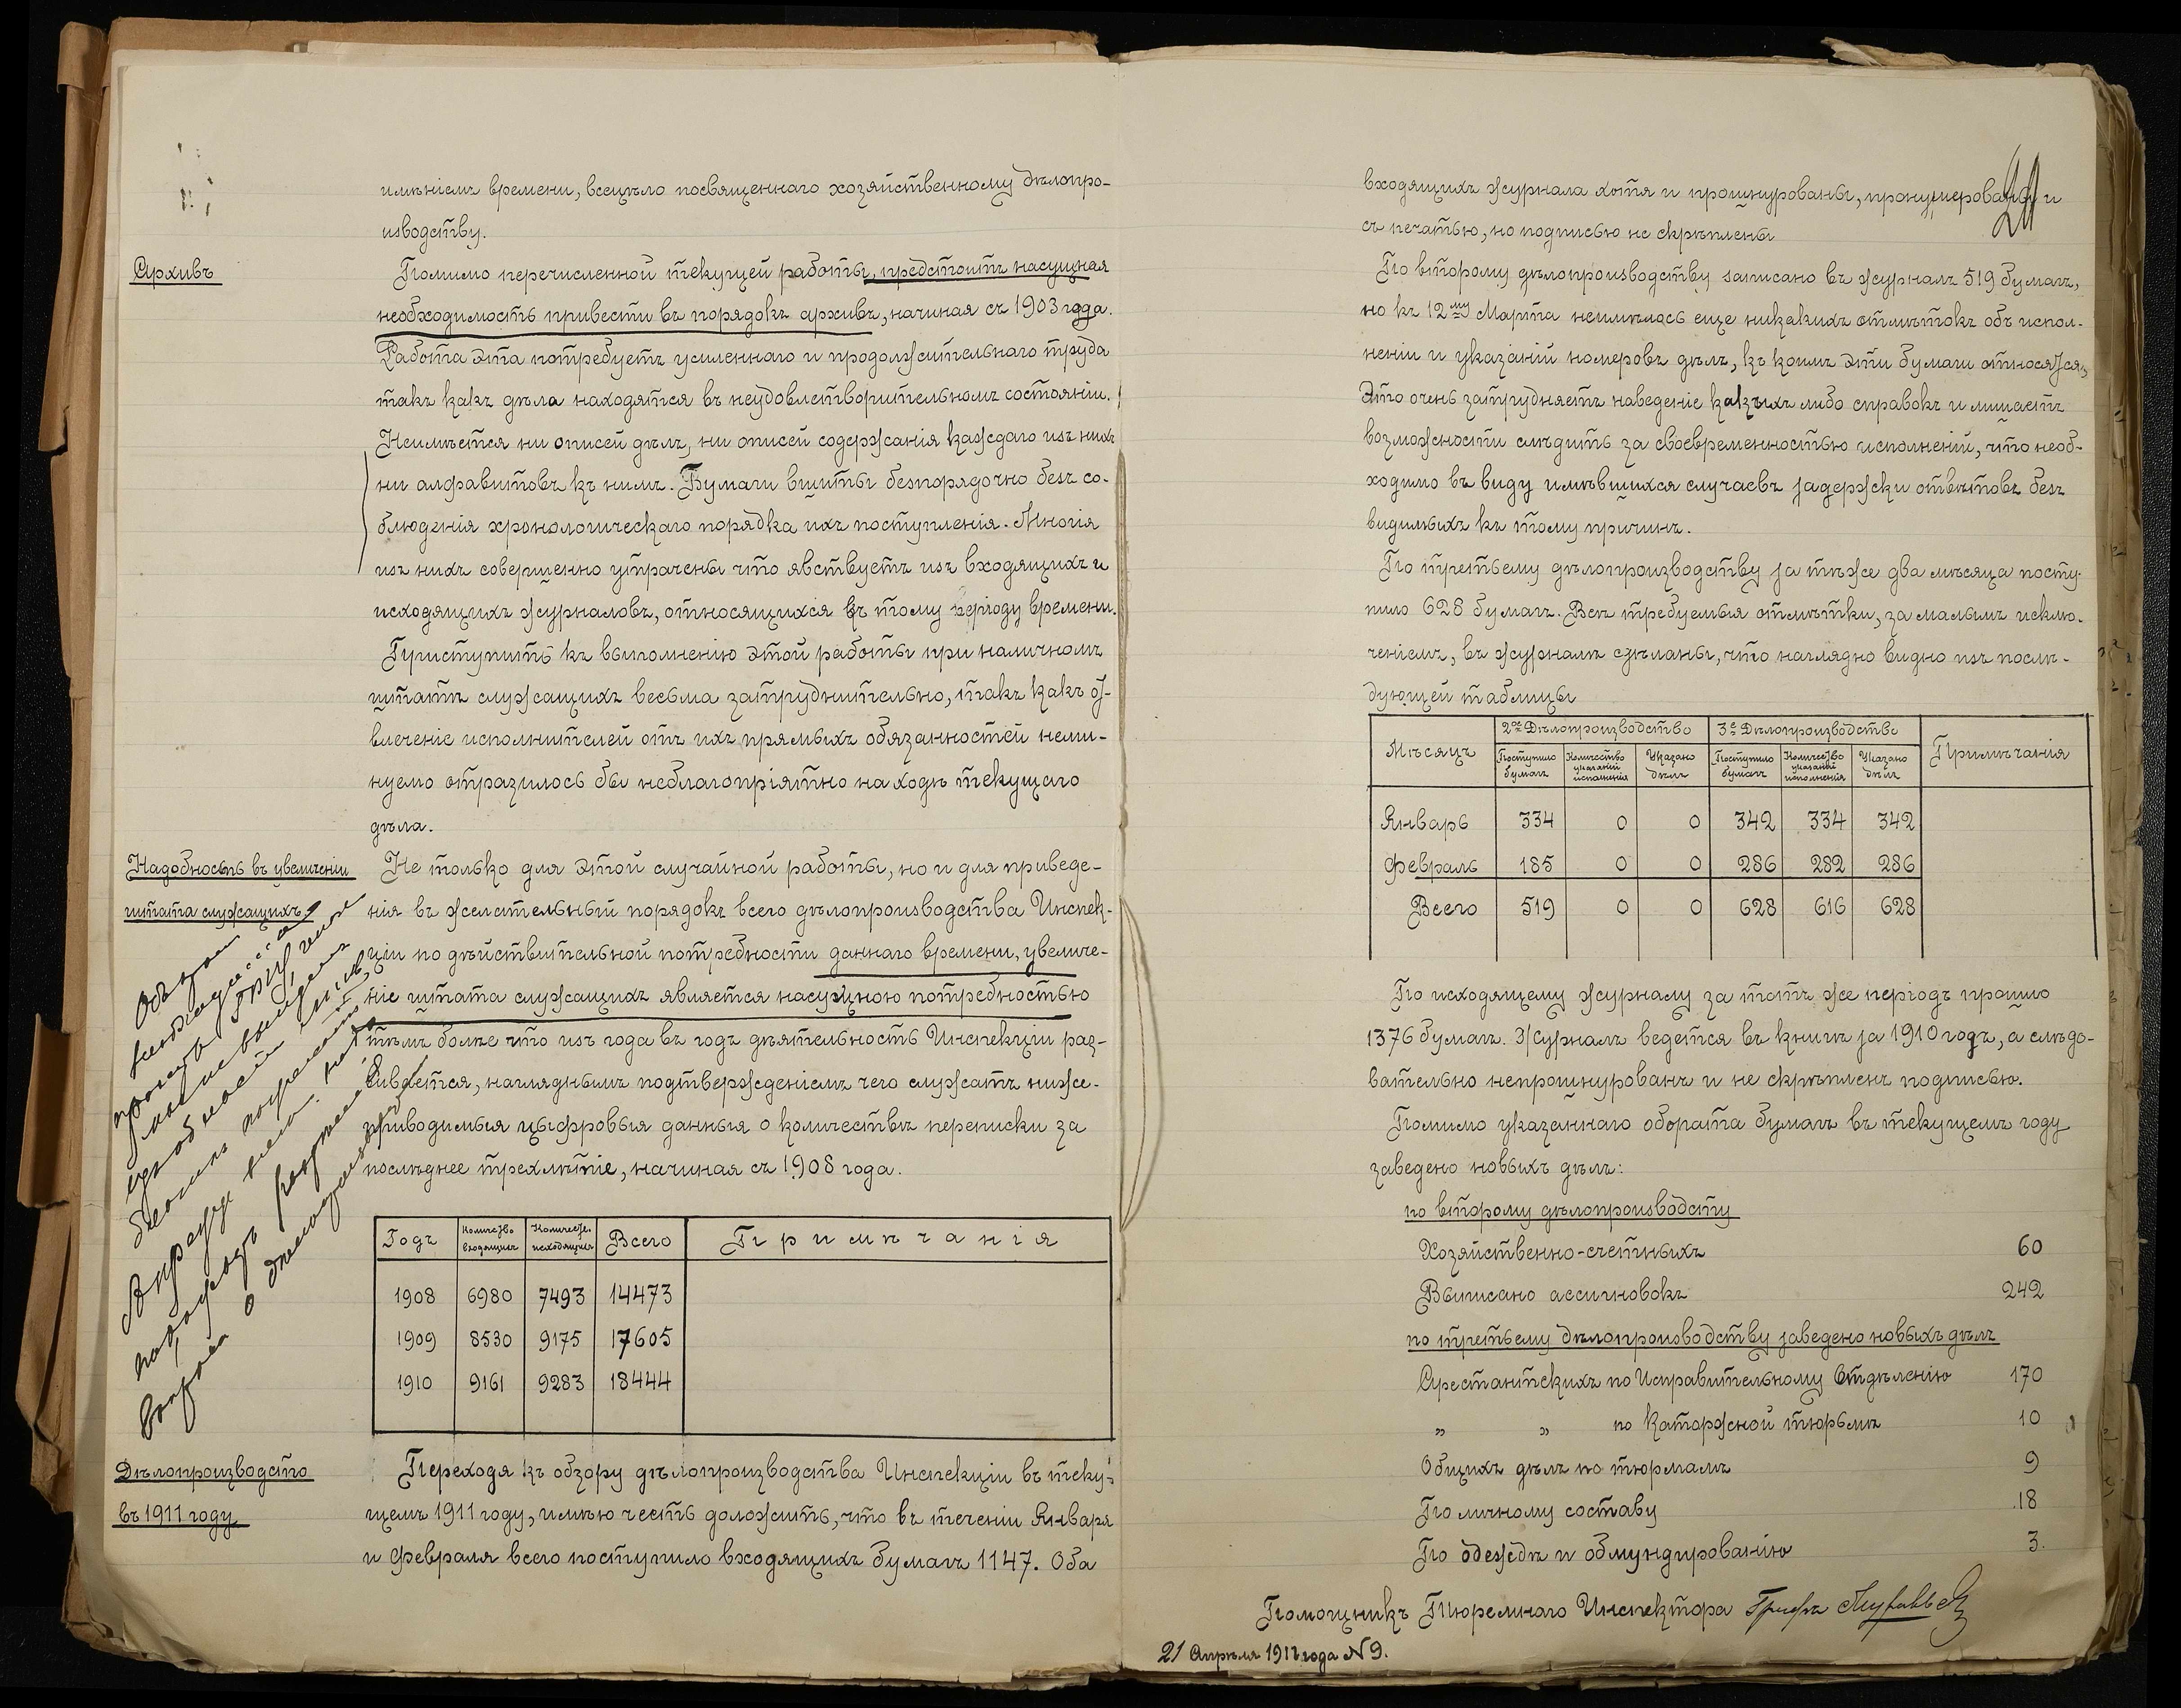 имѣніемъ времени, всецѣло посвященнаго хозяйственному дѣлопро-
изводству.
Архивъ
Помимо перечисленной текущей работы, предстоитъ насущная
необходимость привести въ порядокъ архивъ, начиная съ 1903 года.
Работа эта потребуетъ усиленнаго и продолжительнаго труда
такъ какъ дѣла находятся въ неудовлетворительномъ состояніи.
Неимѣется ни описей дѣлъ, ни описей содержанія каждаго изъ нихъ
ни алфавитовъ къ нимъ. Бумаги вшиты безпорядочно безъ со-
блюденія хронологическаго порядка ихъ поступленія. Многія
изъ нихъ совершенно утрачены что явствуетъ изъ входящихъ и
исходящихъ журналовъ, относящихся къ тому періоду времени.
Приступить къ выполнению этой работы при наличномъ
штатѣ служащихъ весьма затруднительно, такъ какъ от-
влеченіе исполнителей отъ ихъ прямыхъ обязанностей неми-
нуемо отразилось бы неблагопріятно на ходѣ текущаго
дѣла.
Надобность въ увеличеніи
штата служащихъ
Не только для этой случайной работы, но и для приведе-
нія въ желательный порядокъ всего дѣлопроизводства Инспек-
ціи по дѣйствительной потребности даннаго времени, увеличе-
ніе штата служащихъ является насущною потребностью
тѣмъ болѣе что изъ года въ годъ дѣятельность Инспекціи раз-
вивается, нагляднымъ подтвержденіемъ чего служатъ ниже-
приводимыя цыфровыя данныя о количествѣ переписки за
послѣднее трехлѣтіе, начиная съ 1908 года.
Годъ Количество входящихъ Количество исходящихъ Всего Примѣчанія
1908 6980 7493 14473
1909 8530 9175 17605
1910 9161 9283 18444
Дѣлопроизводсто
въ 1911 году
Переходя къ обзору дѣлопроизводства Инспекціи въ теку-
щемъ 1911 году, имѣю честь доложить, что въ теченіи Января
и Февраля всего поступило входящихъ бумагъ 1147. Оба
входящихъ журнала хотя и прошнурованы, пронумерованы и
съ печатью, но подписью не скрѣплены
По второму дѣлопроизводству записано въ журналъ 519 бумагъ,
но къ 12му Марта неимѣлось еще никакихъ отмѣтокъ объ испол-
неніи и указаній номеровъ дѣлъ, къ коимъ эти бумаги относятся,
Это очень затрудняетъ наведеніе какихъ либо справокъ и лишаетъ
возможности слѣдить за своевременностью исполненій, что необ-
ходимо въ виду имѣвшихся случаевъ задержки отвѣтовъ безъ
видимыхъ къ тому причинъ.
По третьему дѣлопроизводству за тѣже два мѣсяца посту-
пило 628 бумагъ. Всѣ требуемыя отмѣтки, за малымъ исклю-
ченіемъ, въ журналѣ сдѣланы, что наглядно видно изъ послѣ-
дующей таблицы
Мѣсяцъ 2ое Дѣлопроизводство 3е Дѣлопроизводство Примѣчанія
Поступило бумагъ Количество указаній исполненія Указано дѣлъ Поступило бумагъ Количество указаній исполненія Указано дѣлъ
Январь 334 0 0 342 334 342
Февраль 185 0 0 286 282 286
Всего 519 0 0 628 616 628
По исходящему журналу за тотъ же періодъ прошло
1376 бумагъ. Журналъ ведется въ книгѣ за 1910 годъ, а слѣдо-
вательно непрошнурованъ и не скрѣпленъ подписью.
Помимо указаннаго оборота бумагъ въ текущемъ году
заведено новыхъ дѣлъ:
по второму дѣлопроизводсту
Хозяйственно-счетныхъ 60
Выписано ассигновокъ 242
по третьему дѣлопроизводству заведено новыхъ дѣлъ
Арестантскихъ по Исправительному Отдѣленію 170
„ „ по Каторжной тюрьмѣ 10
Общихъ дѣлъ по тюрмамъ 9
По личному составу 18
По одеждѣ и обмундированію 3.
Помощникъ Тюремнаго Инспектора
21 Апрѣля 1911 года N 9.